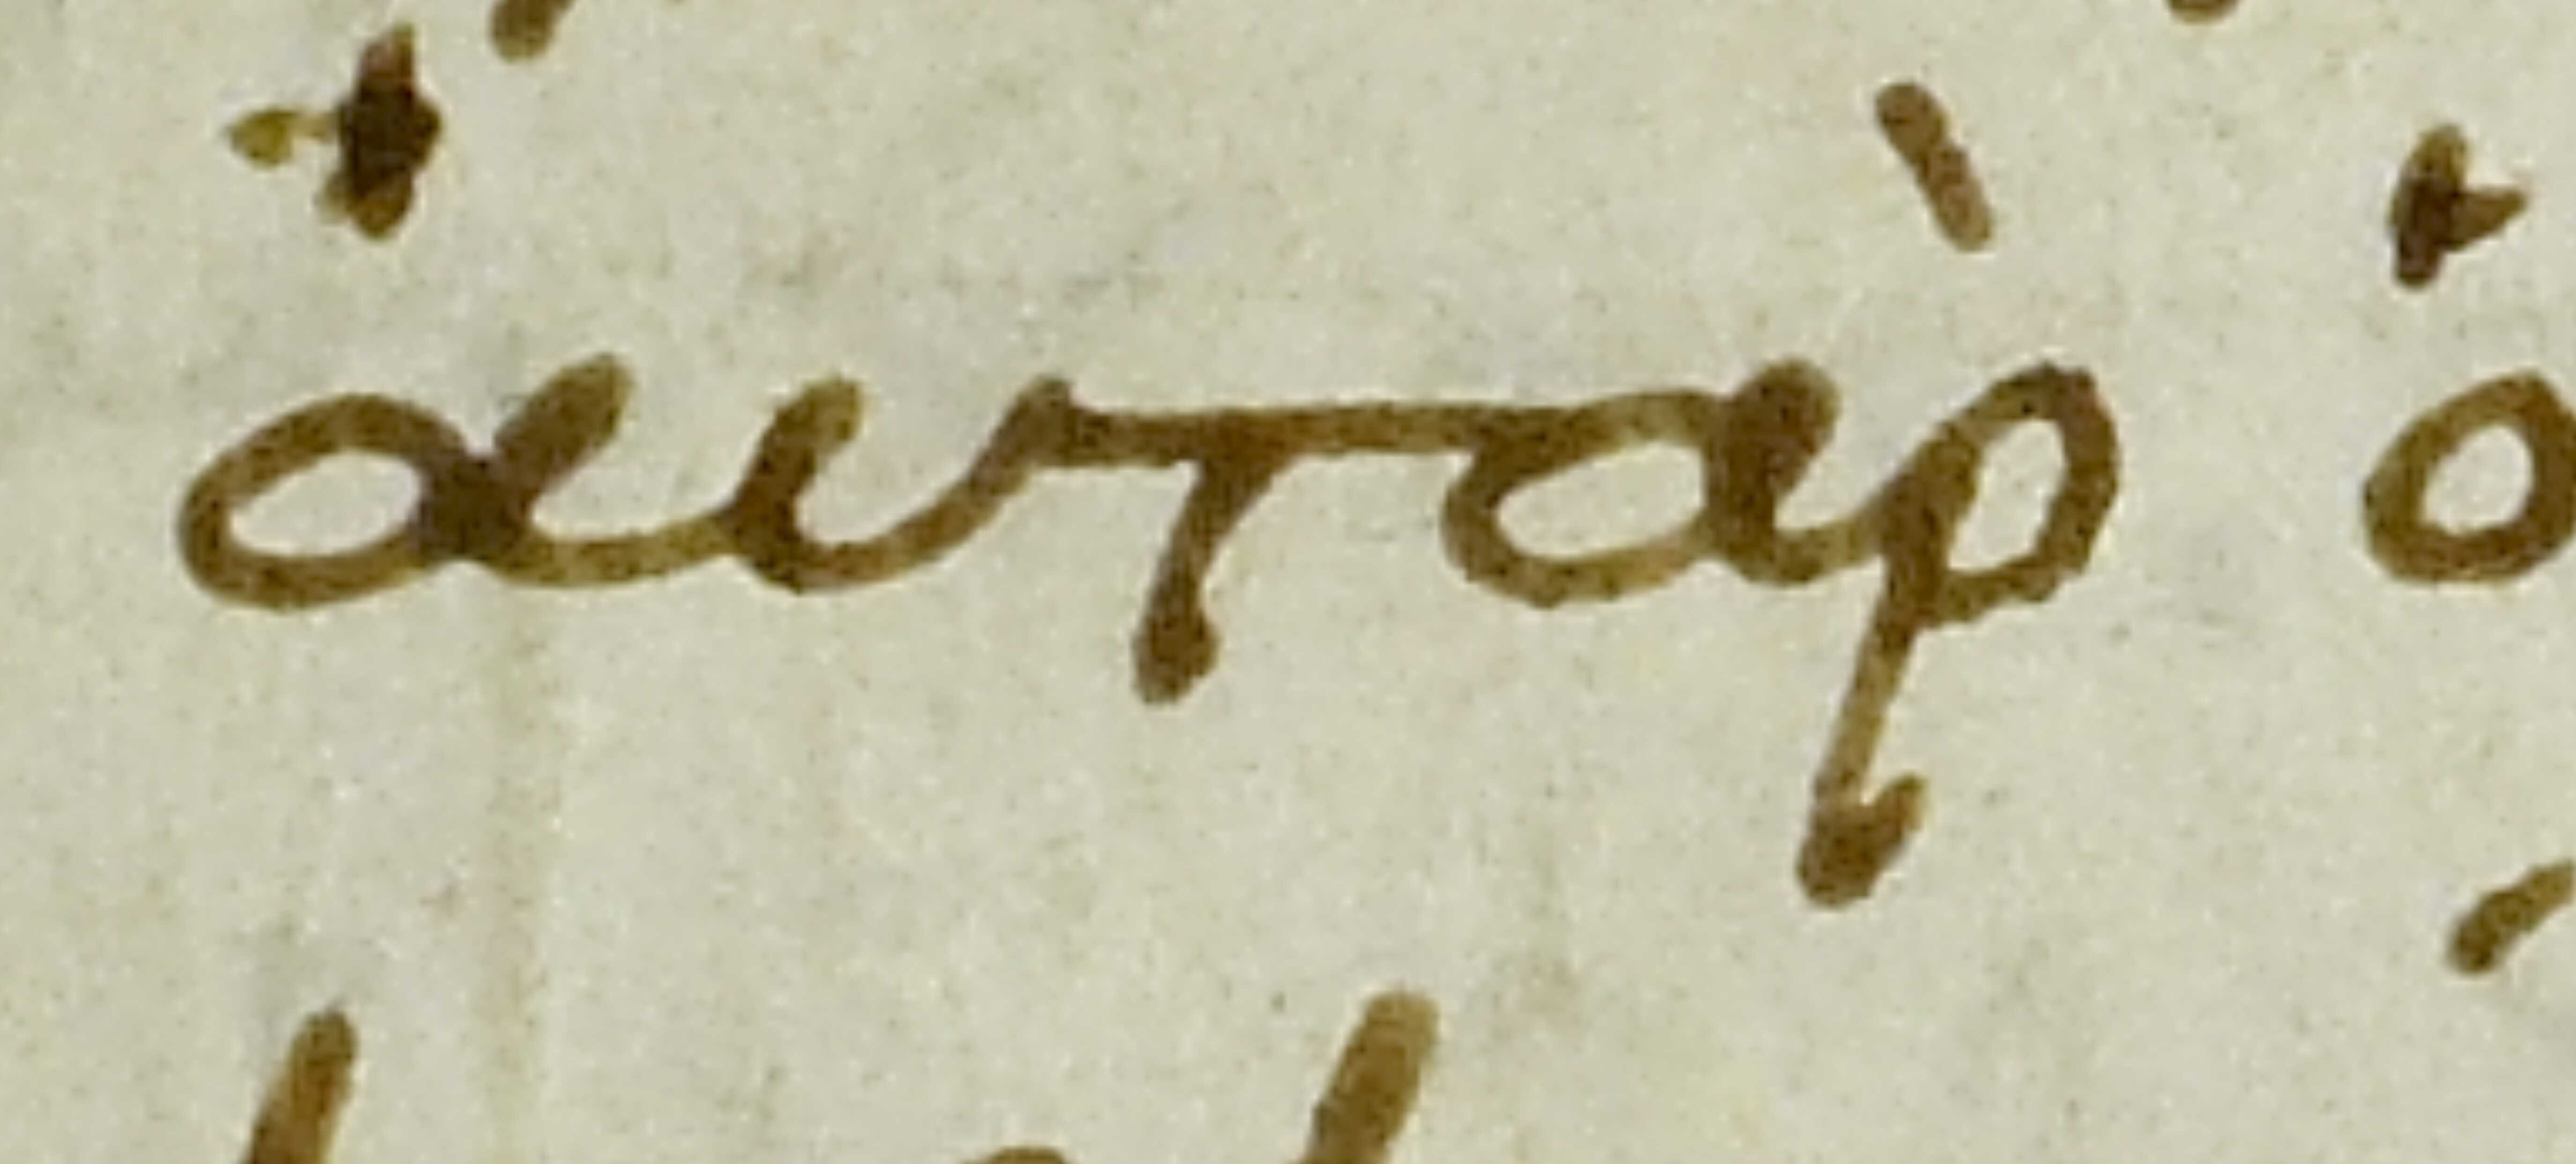 αυτὰρ ὁ